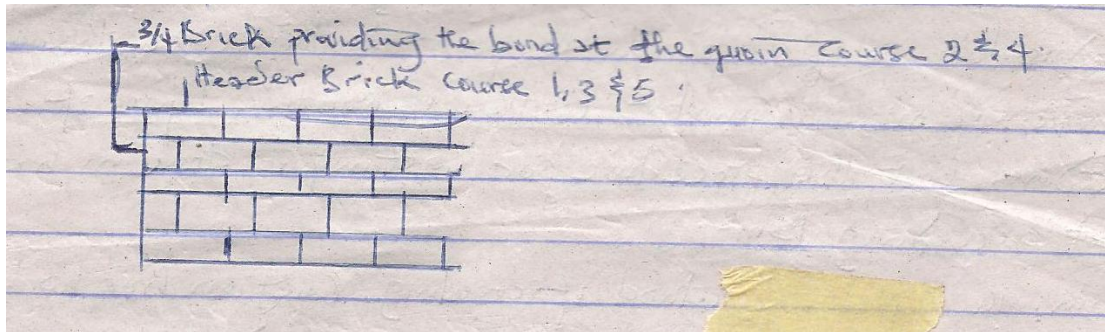 3/4 Brick providing the bond at the quoin course 2 & 4.
Header Brick course 1, 3 & 5.